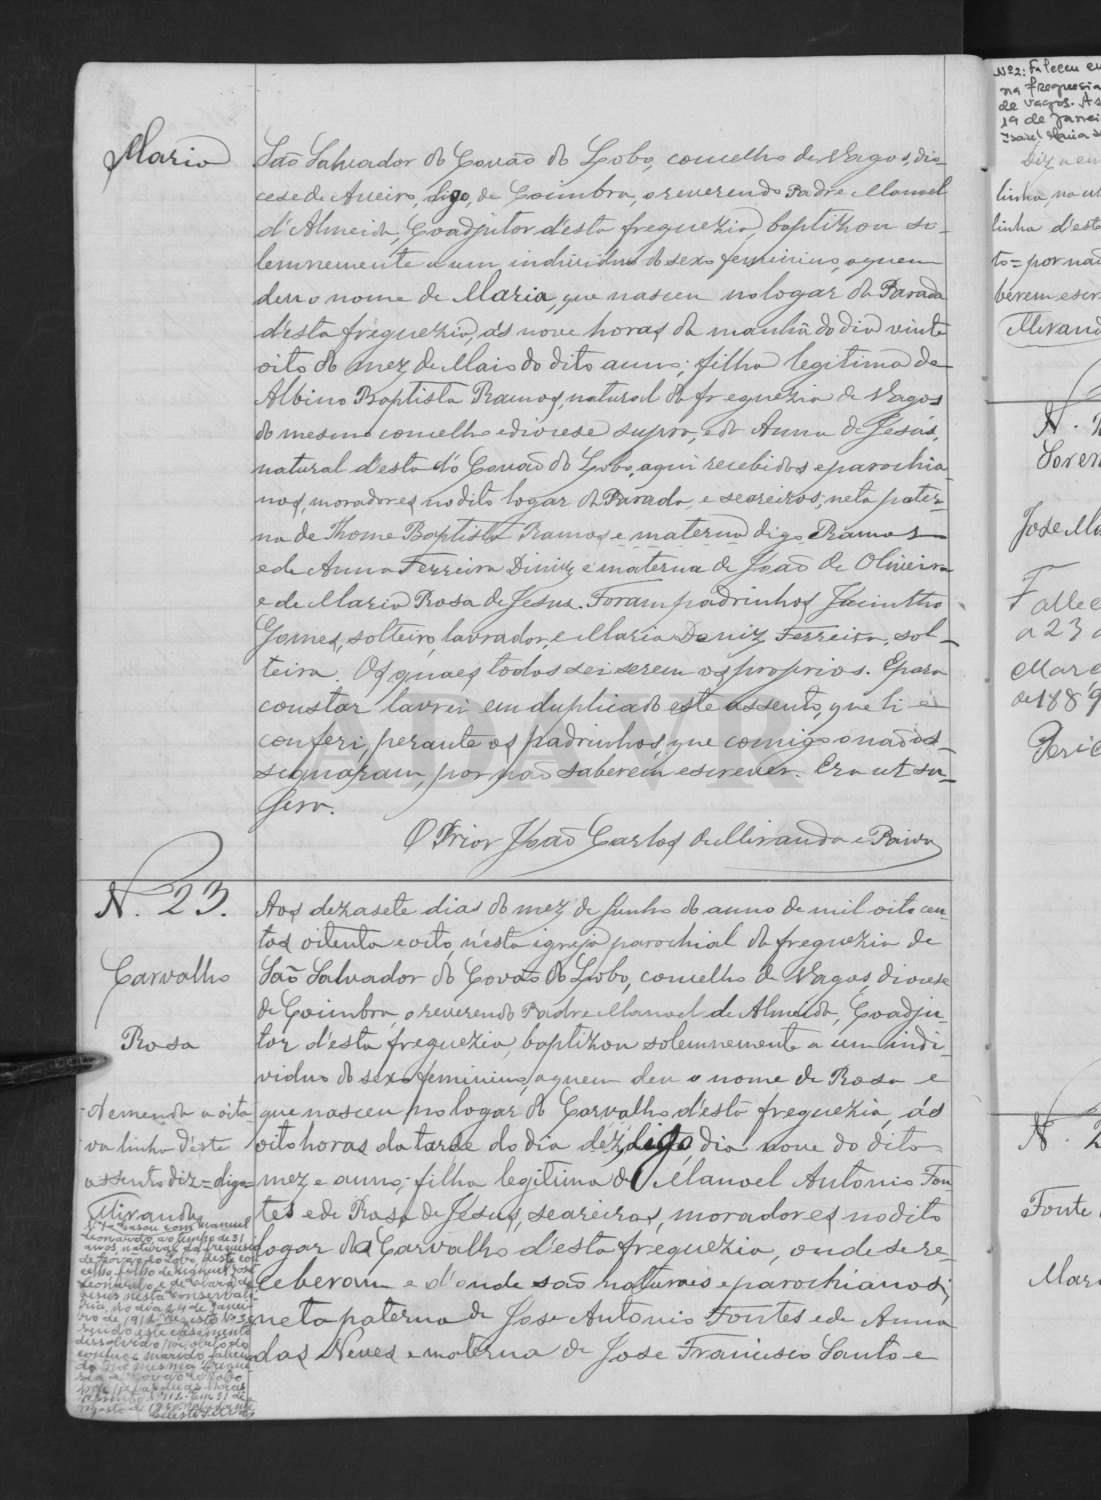 Maria
São Salvador do Covão do Lobo, concelho de Vagos, dio-
cese de Aveiro, digo, de Coimbra, o reverendo Padre Manoel
d'Almeida, Coadjutor d'esta freguezia, baptizou so-
lemnemente a um individuo do sexo feminino, a quem
deu o nome de Maria, que nasceu no logar da Parada
d'esta freguezia, ás nove horas da manhã do dia vinte
oito do mez de Maio do dito anno; filha legitima de
Albino Baptista Ramos, natural da freguezia de Vagos
do mesmo concelho e diocese supra, e de Anna de Jesús,
natural d'esta do Covão do Lobo, aqui recebidos e parochia-
nos, moradores no dito logar da Parada, e seareiros; neta pater-
na de Thome Baptista Ramos e materna digo Ramos
e de Anna Ferreira Diniz e materna de João de Oliveira
e de Maria Rosa de Jesus. Foram padrinhos Jacintho
Gomes, solteiro, lavrador, e Maria Deniz Ferreira, sol-
teira. Os quaes todos sei serem os proprios. E para
constar lavrei em duplicado este assento, que li e
conferi, perante os padrinhos, que comigo o não as-
signaram, por não saberem escrever. Era ut su-
pra.
O Prior João Carlos de Miranda e Paiva
ADAVR
N. 23.
Carvalho
Rosa
Aos dezasete dias do mez de Junho do anno de mil oito cen-
tos oitenta e oito, n'esta igreja parochial da freguezia de
São Salvador do Covão do Lobo, concelho de Vagos, diocese
de Coimbra, o reverendo Padre Manoel de Almeida, Coadju-
tor d'esta freguezia, baptizou solemnemente a um indi-
viduo do sexo feminino, a quem deu o nome de Rosa e
que nasceu no logar do Carvalho d'esta freguezia, ás
oito horas da tarde do dia dez, digo, dia nove do dito
mez e anno; filha legitima de Manoel Antonio Fon-
tes e de Rosa de Jesus, seareiros, moradores no dito
logar do Carvalho d'esta freguezia, onde se re-
ceberam e d'onde são naturais e parochianos;
neta paterna de Jose Antonio Fontes e de Anna
das Neves e materna de Jose Francisco Santo e
A emenda na oita-
va linha d'este
assento diz = digo =
Miranda
casou com Manuel
Leonardo, ao tempo de 31
anos, natural da freguesia
de Covão do Lobo, deste con-
celho, filho de Manuel José
Leonardo e de Maria de
Jesus nesta Conservató-
ria, no dia 24 de Janei-
ro de 1912. Registo Nº 3
tendo este casamento
dissolvido por obito do
conjuge marido falecido
na mesma fregue-
sia de Covão do Lobo
Nº2: Faleceu em
na freguesia
de Vagos.
19 de Janei
linha, na
linha d'este
to = por não
berem escre
Miranda
N.
José Ma
Fallec
a 23
Março
de 1889
N. 2
Fonte
Mari